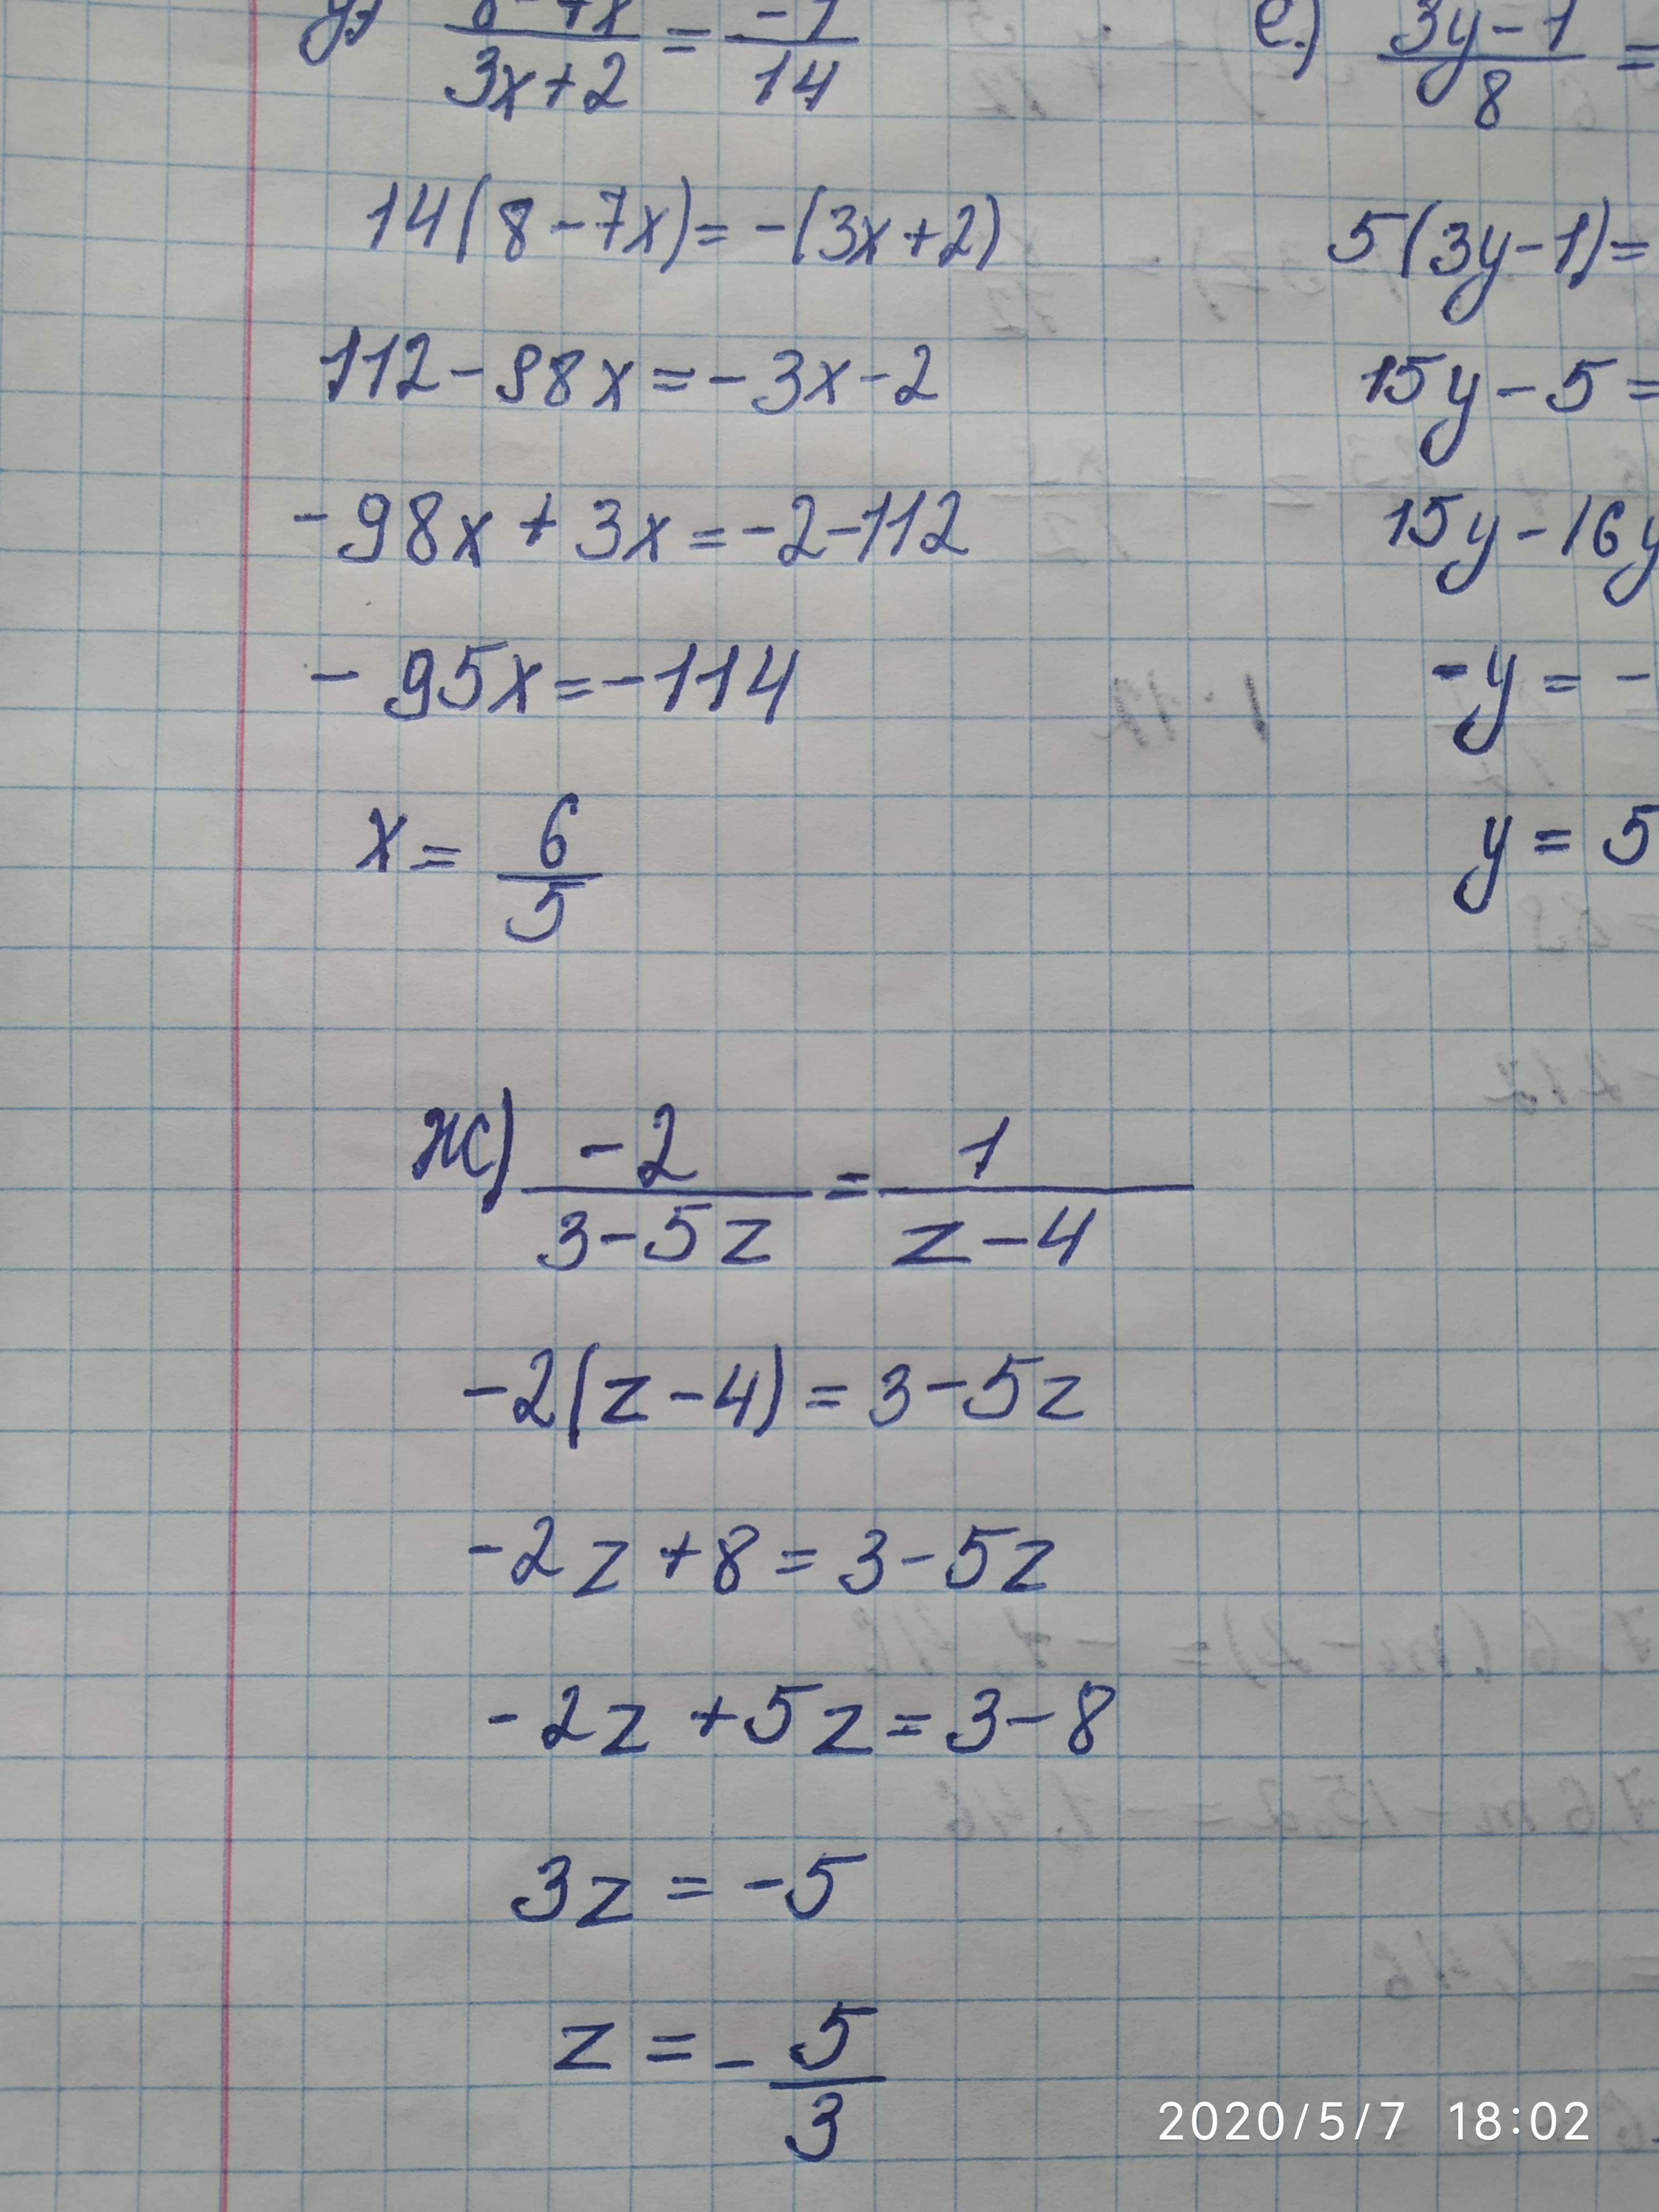 д) 8-7x/3x+2 = -1/14
14(8-7x)=-(3x+2)
112-98x=-3x-2
-98x+3x=-2-112
-95x=-114
x=6/5
е.) 3y-1/8 =
5(3y-1)=
15y-5=
15y-16y
-y=-
y=5
ж) -2/3-5z = 1/z-4
-2(z-4)=3-5z
-2z+8=3-5z
-2z+5z=3-8
3z=-5
z=-5/3
2020/5/7 18:02